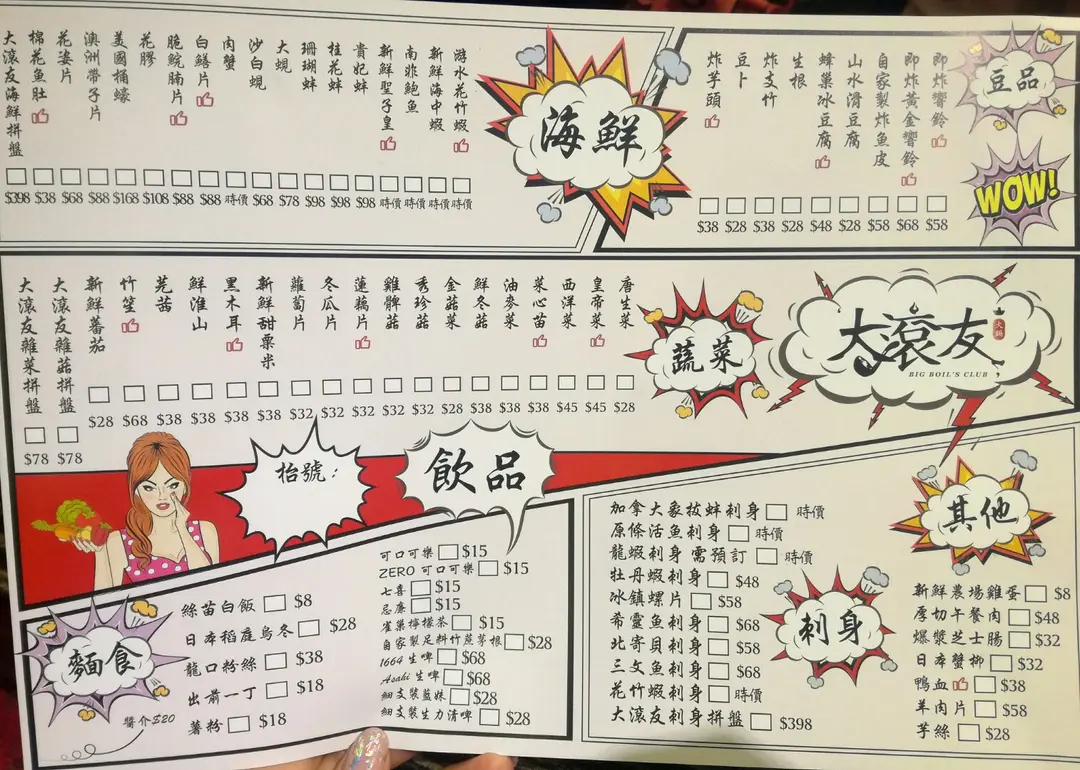 豆品
即炸響鈴 $58
即炸黃金響鈴 $68
自家製炸魚皮 $58
山水滑豆腐 $28
蜂巢冰豆腐 $48
生根 $28
炸支竹 $38
豆卜 $28
炸芋頭 $38
WOW!
海鮮
游水花竹蝦 時價
新鮮海中蝦 時價
南非鮑魚 時價
新鮮聖子皇 時價
貴妃蚌 $98
桂花蚌 $98
珊瑚蚌 $98
大蜆 $78
沙白蜆 $68
肉蟹 時價
白鱔片 $88
脆鯇腩片 $88
花膠 $108
美國桶蠔 $168
澳洲帶子片 $88
花姿片 $68
棉花魚肚 $38
大滾友海鮮拼盤 $398
大滾友
火鍋
BIG BOIL'S CLUB
蔬菜
唐生菜 $28
皇帝菜 $45
西洋菜 $45
菜心苗 $38
油麥菜 $38
鮮冬菇 $38
金菇菜 $28
秀珍菇 $32
雞髀菇 $32
蓮藕片 $32
冬瓜片 $32
蘿蔔片 $32
新鮮甜粟米 $38
黑木耳 $38
鮮淮山 $38
芫茜 $38
竹笙 $68
新鮮蕃茄 $28
大滾友雜菇拼盤 $78
大滾友雜菜拼盤 $78
枱號：
飲品
可口可樂 $15
ZERO 可口可樂 $15
七喜 $15
忌廉 $15
雀巢檸檬茶 $15
自家製足料竹蔗茅根 $28
1664 生啤 $68
Asahi 生啤 $68
細支裝藍妹 $28
細支裝生力清啤 $28
麵食
絲苗白飯 $8
日本稻庭烏冬 $28
龍口粉絲 $38
出前一丁 $18
薯粉 $18
醬介 $20
刺身
加拿大象拔蚌刺身 時價
原條活魚刺身 時價
龍蝦刺身 需預訂 時價
牡丹蝦刺身 $48
冰鎮螺片 $58
希靈魚刺身 $68
北寄貝刺身 $58
三文魚刺身 $68
花竹蝦刺身 時價
大滾友刺身拼盤 $398
其他
新鮮農場雞蛋 $8
厚切午餐肉 $48
爆漿芝士腸 $32
日本蟹柳 $32
鴨血 $38
羊肉片 $58
芋絲 $28